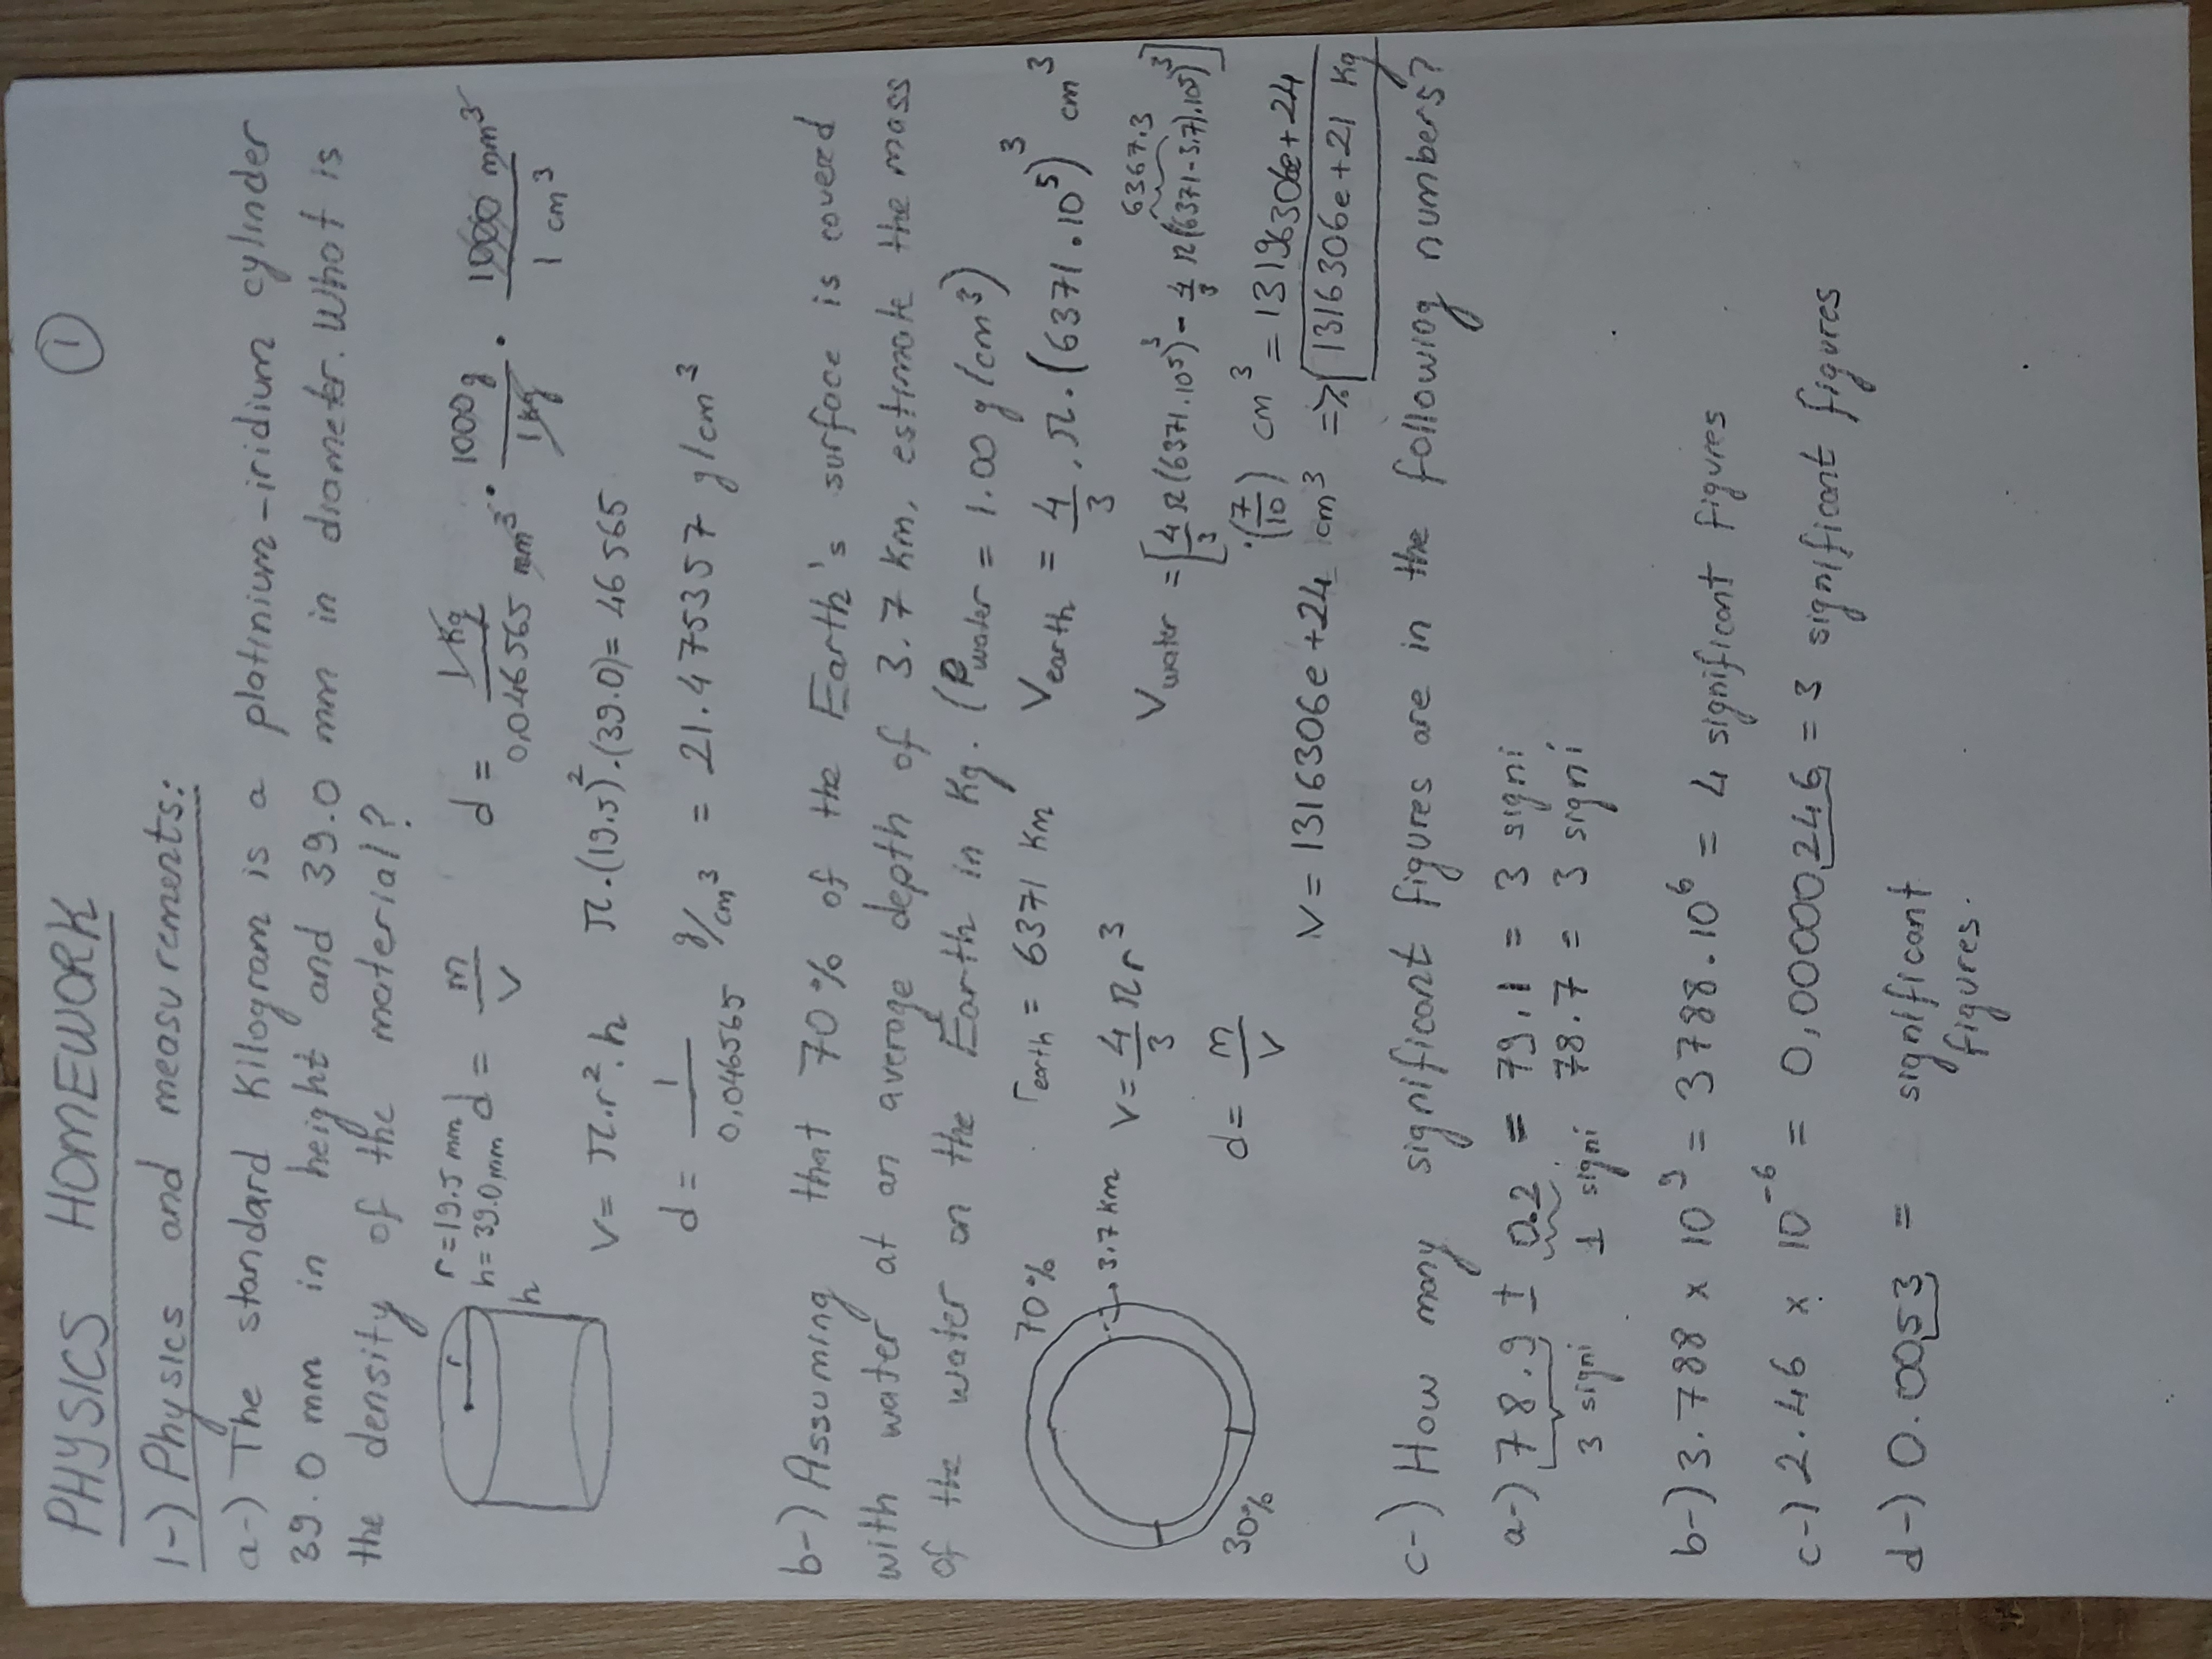 PHYSICS HOMEWORK
1
1-) Physics and measurements:
a-) The standard Kilogram is a platinium-iridium cylinder
39.0 mm in height and 39.0 mm in diameter. What is
the density of the material?
r
r = 19.5 mm
h = 39.0 mm
h
d = m/V
d = 1 kg / 0,046565 mm³ · 1000 g / 1 kg · 1000 mm³ / 1 cm³
V = π.r².h π.(19.5)².(39.0) = 46 565
d = 1 / 0,046565 g/cm³ = 21.475357 g/cm³
b-) Assuming that 70% of the Earth's surface is covered
with water at an average depth of 3.7 Km, estimate the mass
of the water on the Earth in Kg. (ρwater = 1.00 g/cm³)
70%
3.7 Km
30%
rearth = 6371 Km
Vearth = 4/3 . π.(6371.10⁵)³ cm³
V = 4/3 πr³
6367.3
Vwater = [4/3 π(6371.10⁵)³ - 4/3 π((6371-3.7).10⁵)³]
d = m/V
.(7/10) cm³ = 13196306e+24
V = 1316306e+24 cm³ => 1316306e+21 Kg
c-) How many significant figures are in the following numbers?
a-) 78.9 ± 0.2 = 79.1 = 3 signi
3 signi 1 signi 78.7 = 3 signi
b-) 3.788 x 10⁹ = 3788.10⁶ = 4 significant figures
c-) 2.46 x 10⁻⁶ = 0,00000246 = 3 significant figures
d-) 0.0053 = significant
figures.